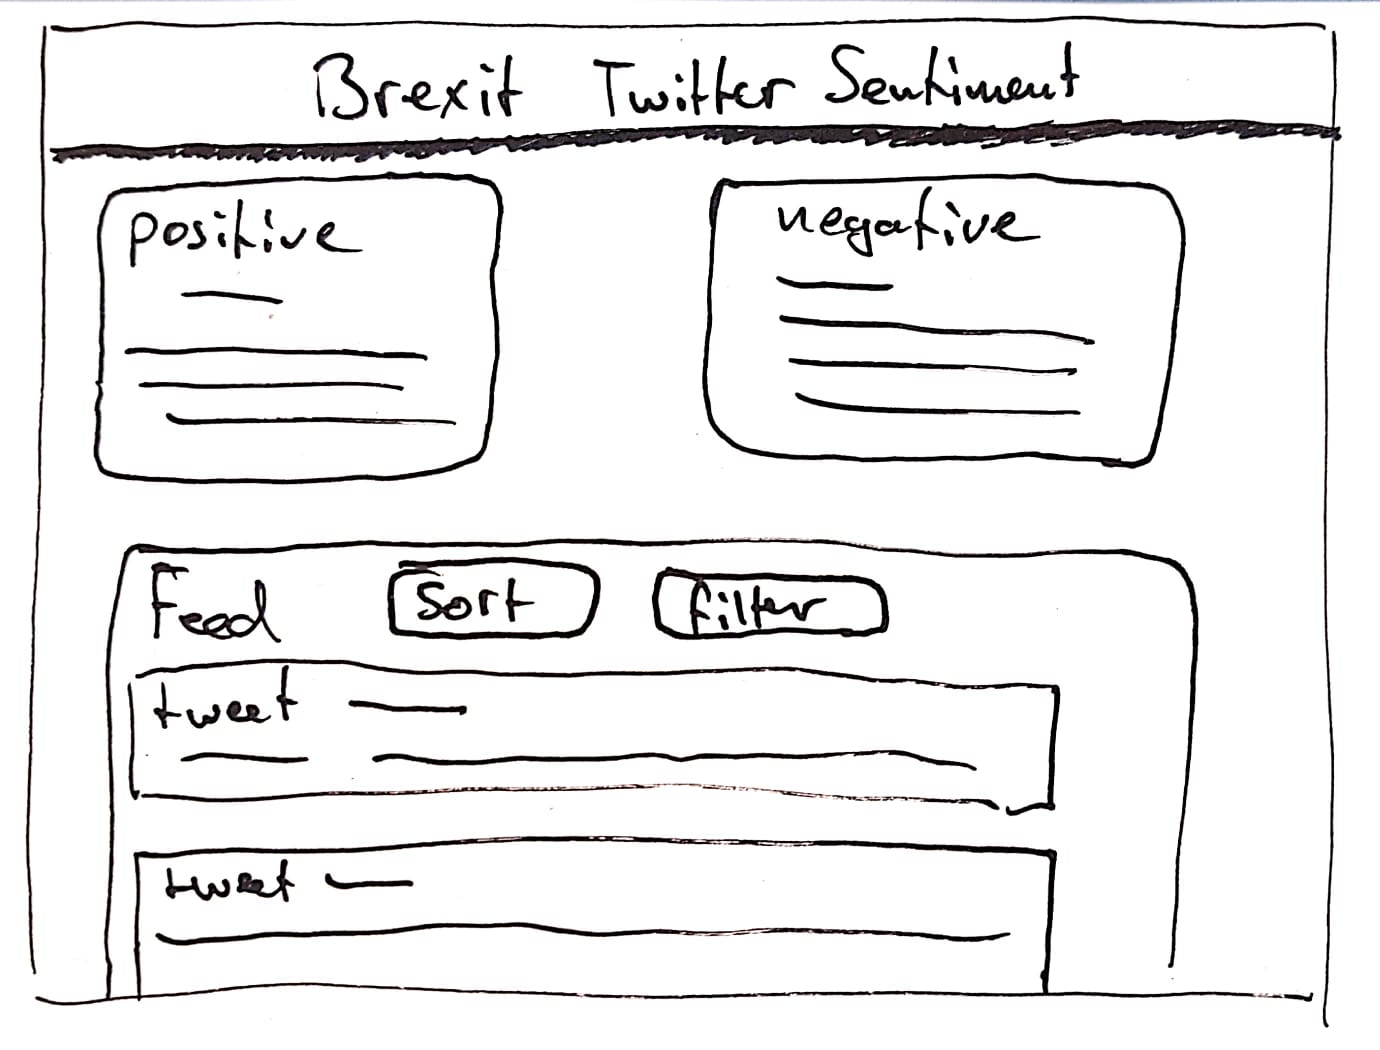 Brexit Twitter Sentiment
positive
negative
Feed
Sort
filter
tweet
tweet